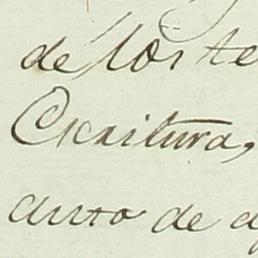 de los te
Escritura,
auto de